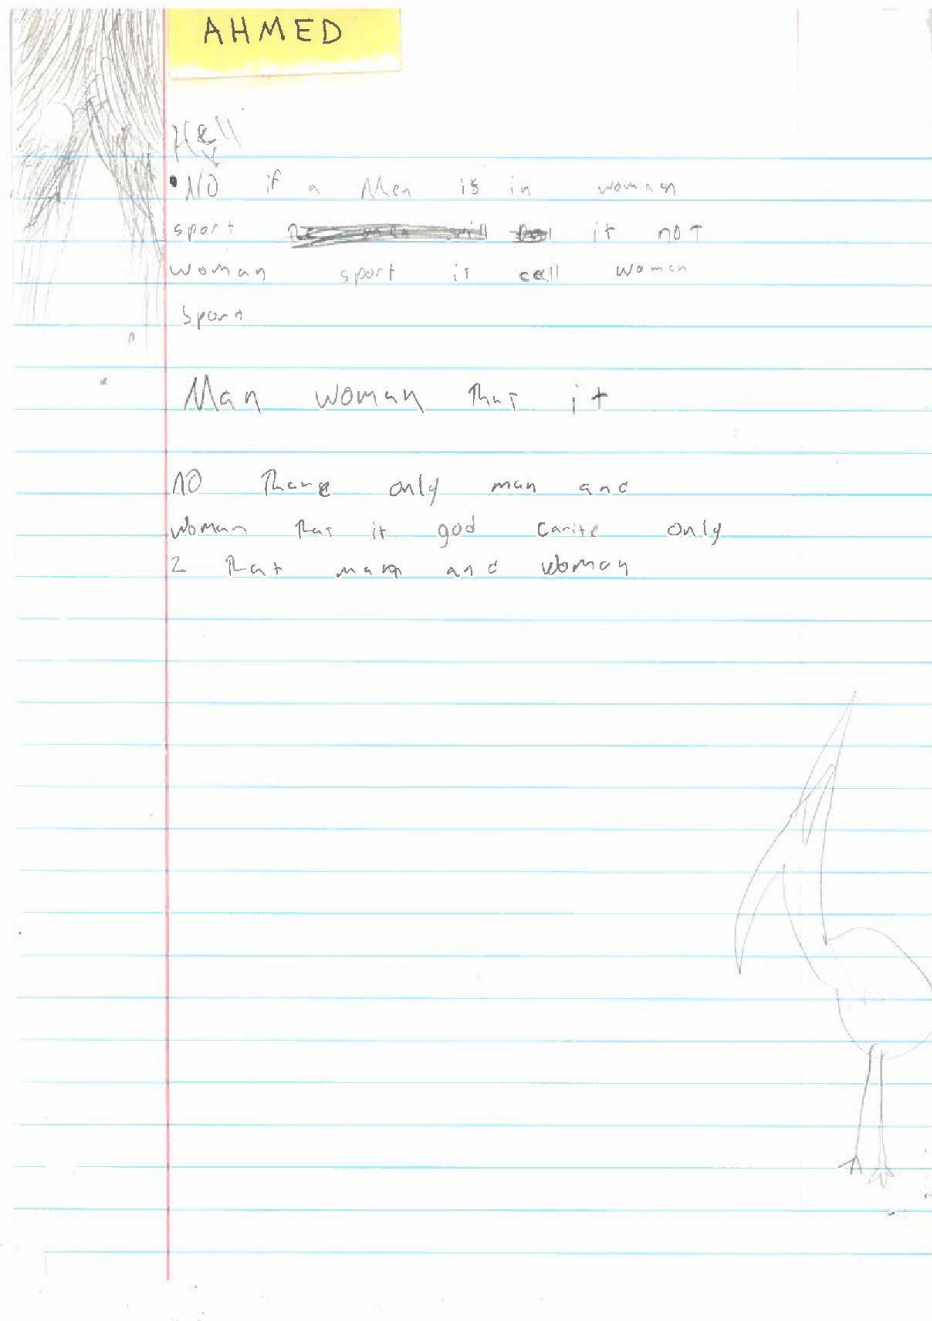 AHMED
Hell
•NO if a Men is in woman
sport it not
woman sport it call women
sport
Man woman that it
NO thare only man and
woman that it god carite only
2 that man and woman